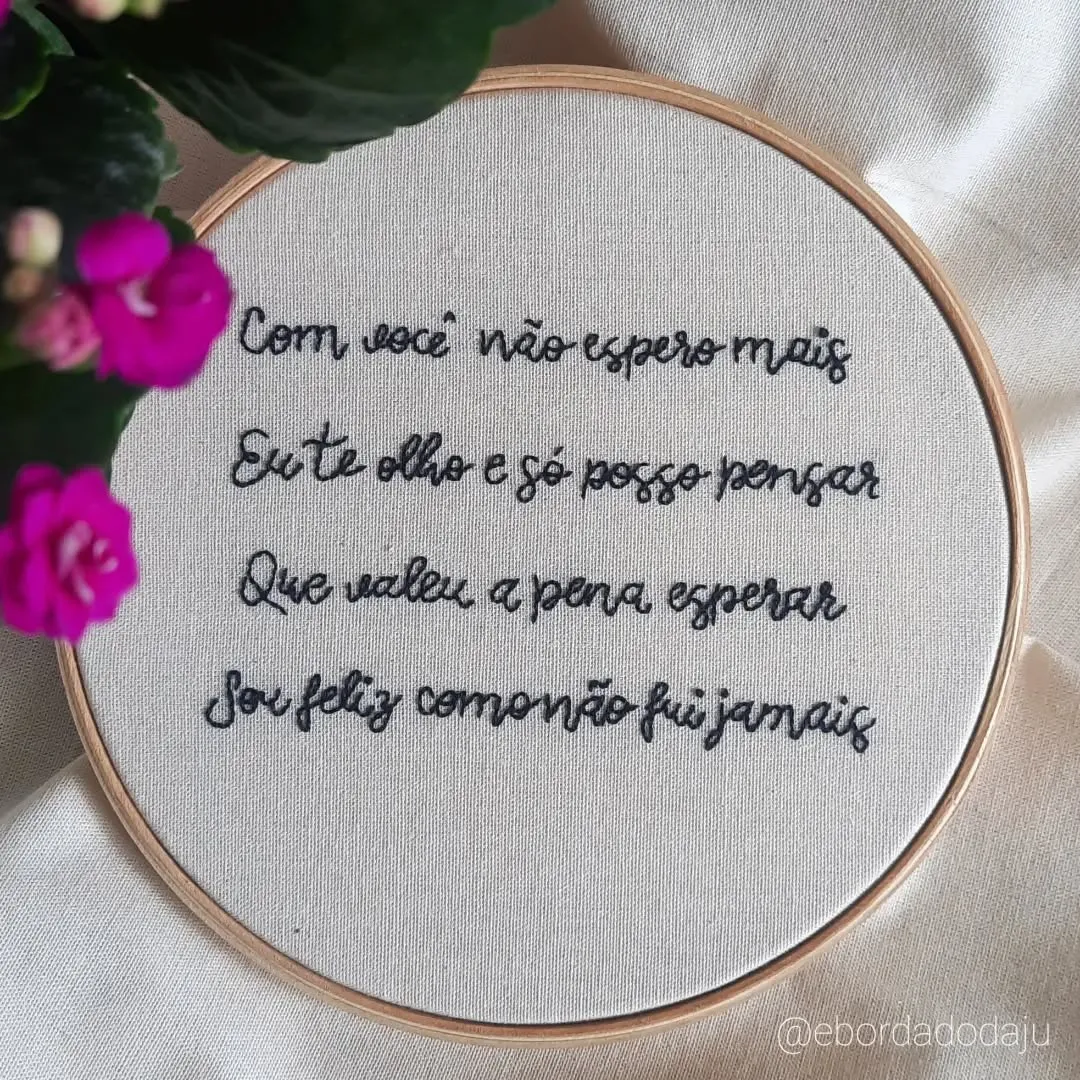 Com você não espero mais
Eu te olho e só posso pensar
Que valeu a pena esperar
Sou feliz como não fui jamais
@ebordadodaju